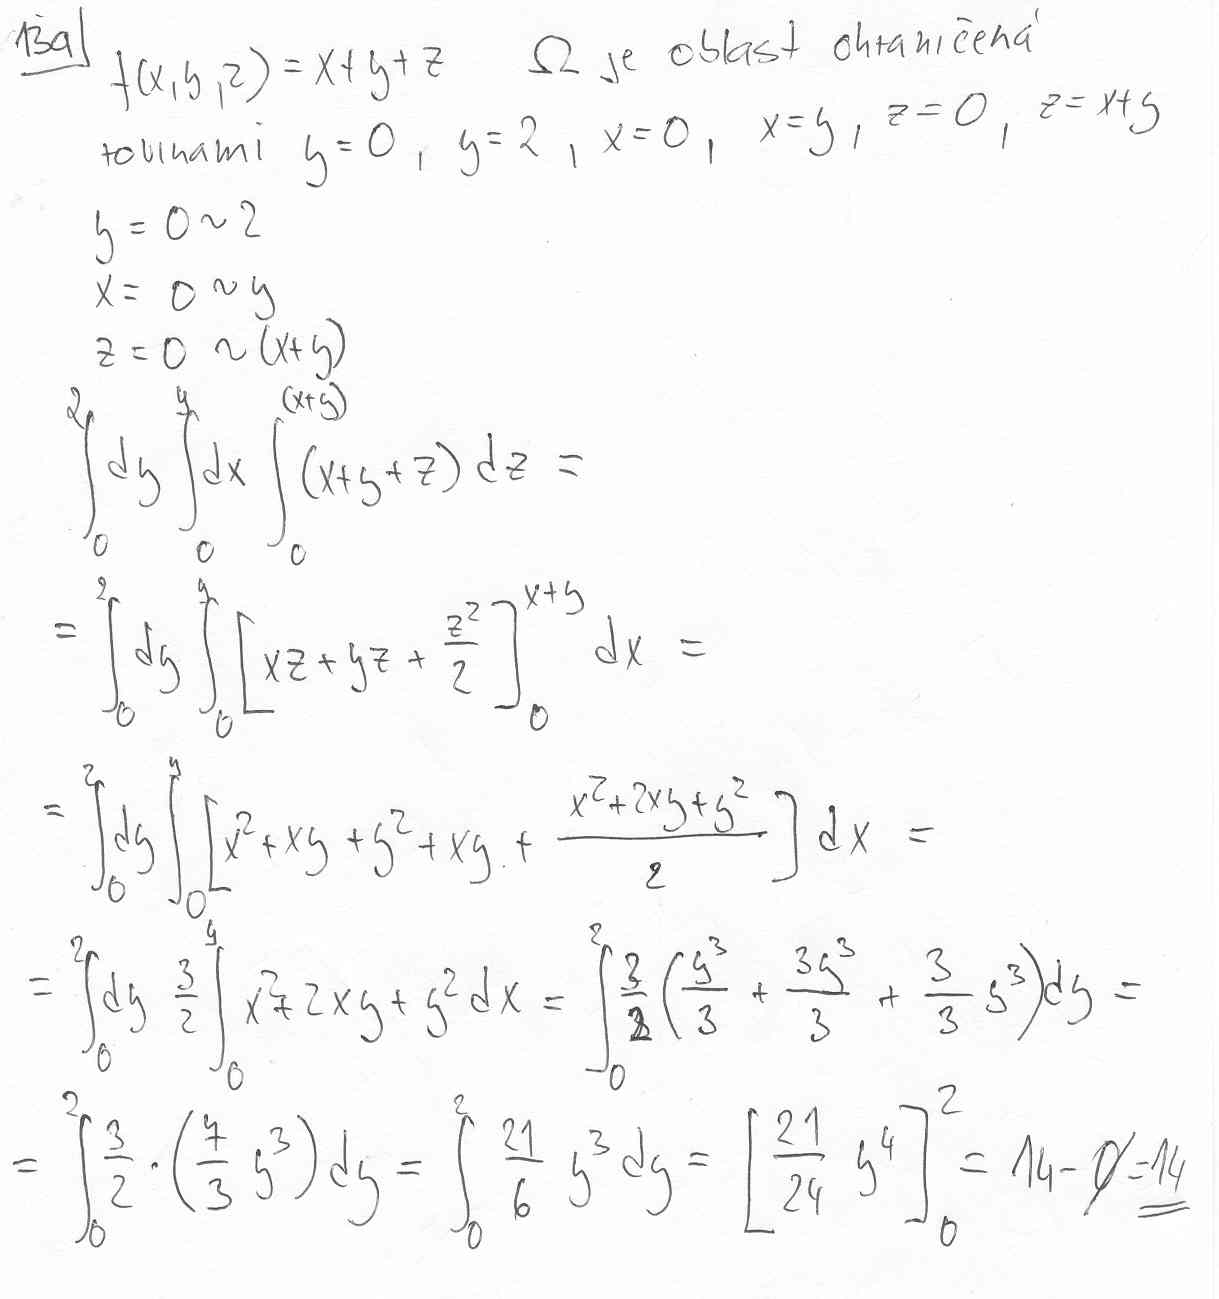 13a)
f(x,y,z) = x+y+z Ω je oblast ohraničená
rovinami y=0, y=2, x=0, x=y, z=0, z=x+y
y = 0 ~ 2
x = 0 ~ y
z = 0 ~ (x+y)
∫₀² dy ∫₀^y dx ∫₀^(x+y) (x+y+z) dz =
= ∫₀² dy ∫₀^y [xz + yz + z²/2]₀^(x+y) dx =
= ∫₀² dy ∫₀^y [x² + xy + y² + xy + (x²+2xy+y²)/2] dx =
= ∫₀² dy 3/2 ∫₀^y x² + 2xy + y² dx = ∫₀² 3/2 (y³/3 + 3y³/3 + 3/3 y³) dy =
= ∫₀² 3/2 · (7/3 y³) dy = ∫₀² 21/6 y³ dy = [21/24 y⁴]₀² = 14 - 0 = 14